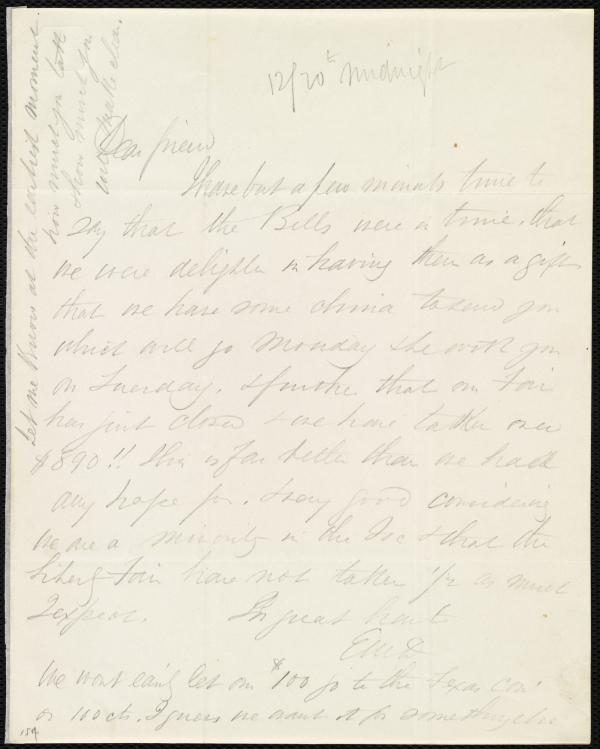 12/20t Midnight
Dear friend
I have but a few minuts time to
say that the Bells were in time, that
we were delighted in having them as a gift
that we have some china to send you
which will go Monday & be with you
on Tuesday. & further that our Fair
has just closed & we have taken over
$890!! This is far better than we had
any hope for. & very good considering
we are a minority in the Soc & that the
Liberty Fair have not taken 1/2 as much
I expect. In great haste
EMD
We wont ea'ily let our $100 go to the Texas Con'
or 100 cts. I guess we want it for something else
Let me know at the earliest moment
how much you took
& how much you
will make clear.
159.